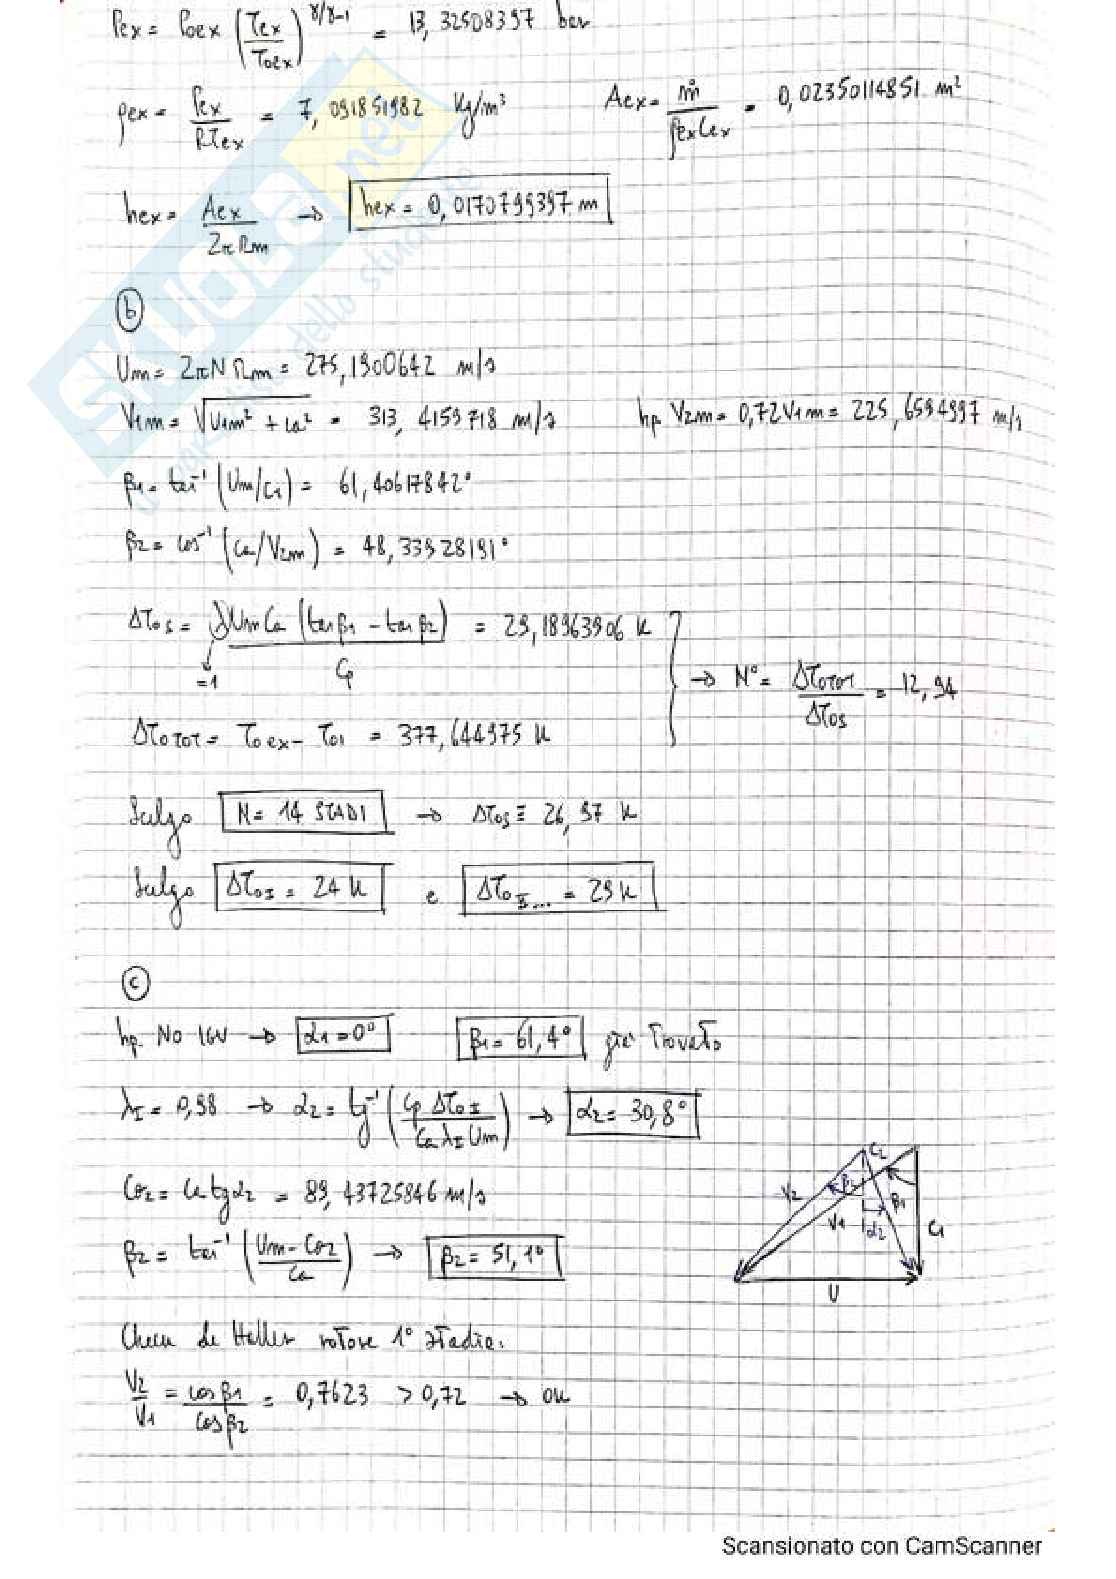 Pex = Poex (Tex/Toex)^γ/γ-1 = 13,32508397 bar
ρex = Pex/RTex = 7,091851982 Kg/m³ Aex = ṁ/ρexCex = 0,02350114851 m²
hex = Aex/2πRm → hex = 0,0170799397 m
b
Um = 2πNRm = 275,1900642 m/s
V1m = √U1m² + Ca² = 313,4159718 m/s hp. V2m = 0,72V1m = 225,6594997 m/s
β1 = tan⁻¹ (Um/C1) = 61,40617842°
β2 = cos⁻¹ (Ca/V2m) = 48,33928191°
ΔTos = λUmCa (tanβ1 - tanβ2)/Cp = 29,18963906 K
=1
→ N° = ΔToTOT/ΔTos = 12,94
ΔToTOT = Toex - To1 = 377,644975 K
Scelgo N = 14 STADI → ΔTos ≡ 26,97 K
Scelgo ΔToI = 24 K e ΔToII... = 29 K
c
hp. No IGV → α1 = 0° β1 = 61,4° già trovato
λI = 0,98 → α2 = tg⁻¹ (Cp ΔToI/Ca λI Um) → α2 = 30,8°
Cθ2 = Ca tgα2 = 89,43725846 m/s
β2 = tan⁻¹ (Um - Cθ2/Ca) → β2 = 51,1°
C2
V2
β2
β1
V1
α2
C1
U
Check de Haller rotore 1° stadio:
V2/V1 = cosβ1/cosβ2 = 0,7623 > 0,72 → OK
SKUOLA.net
Scansionato con CamScanner